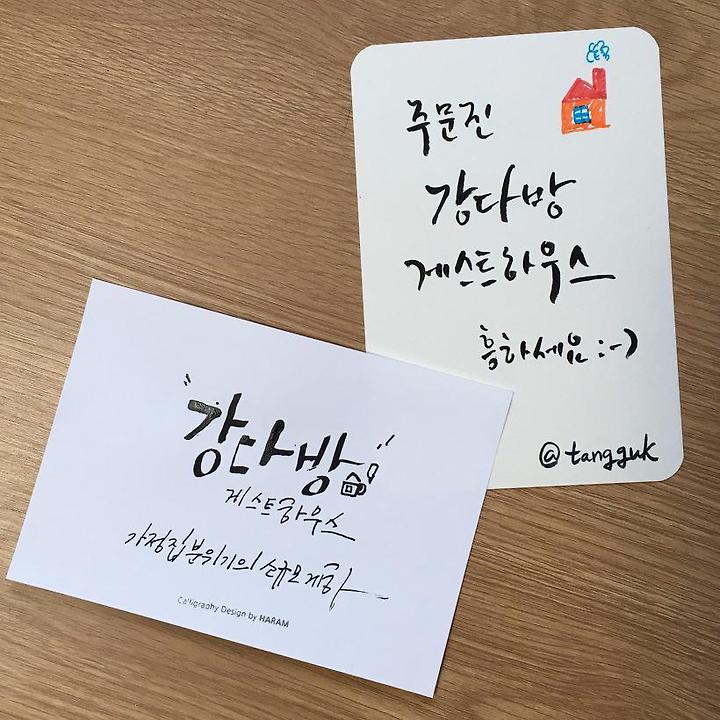 주문진
강다방
게스트하우스
흥하세요 :-)
@tangguk
"강다방"
게스트하우스
가정집 분위기의 소규모 게하
Calligraphy Design by HARAM